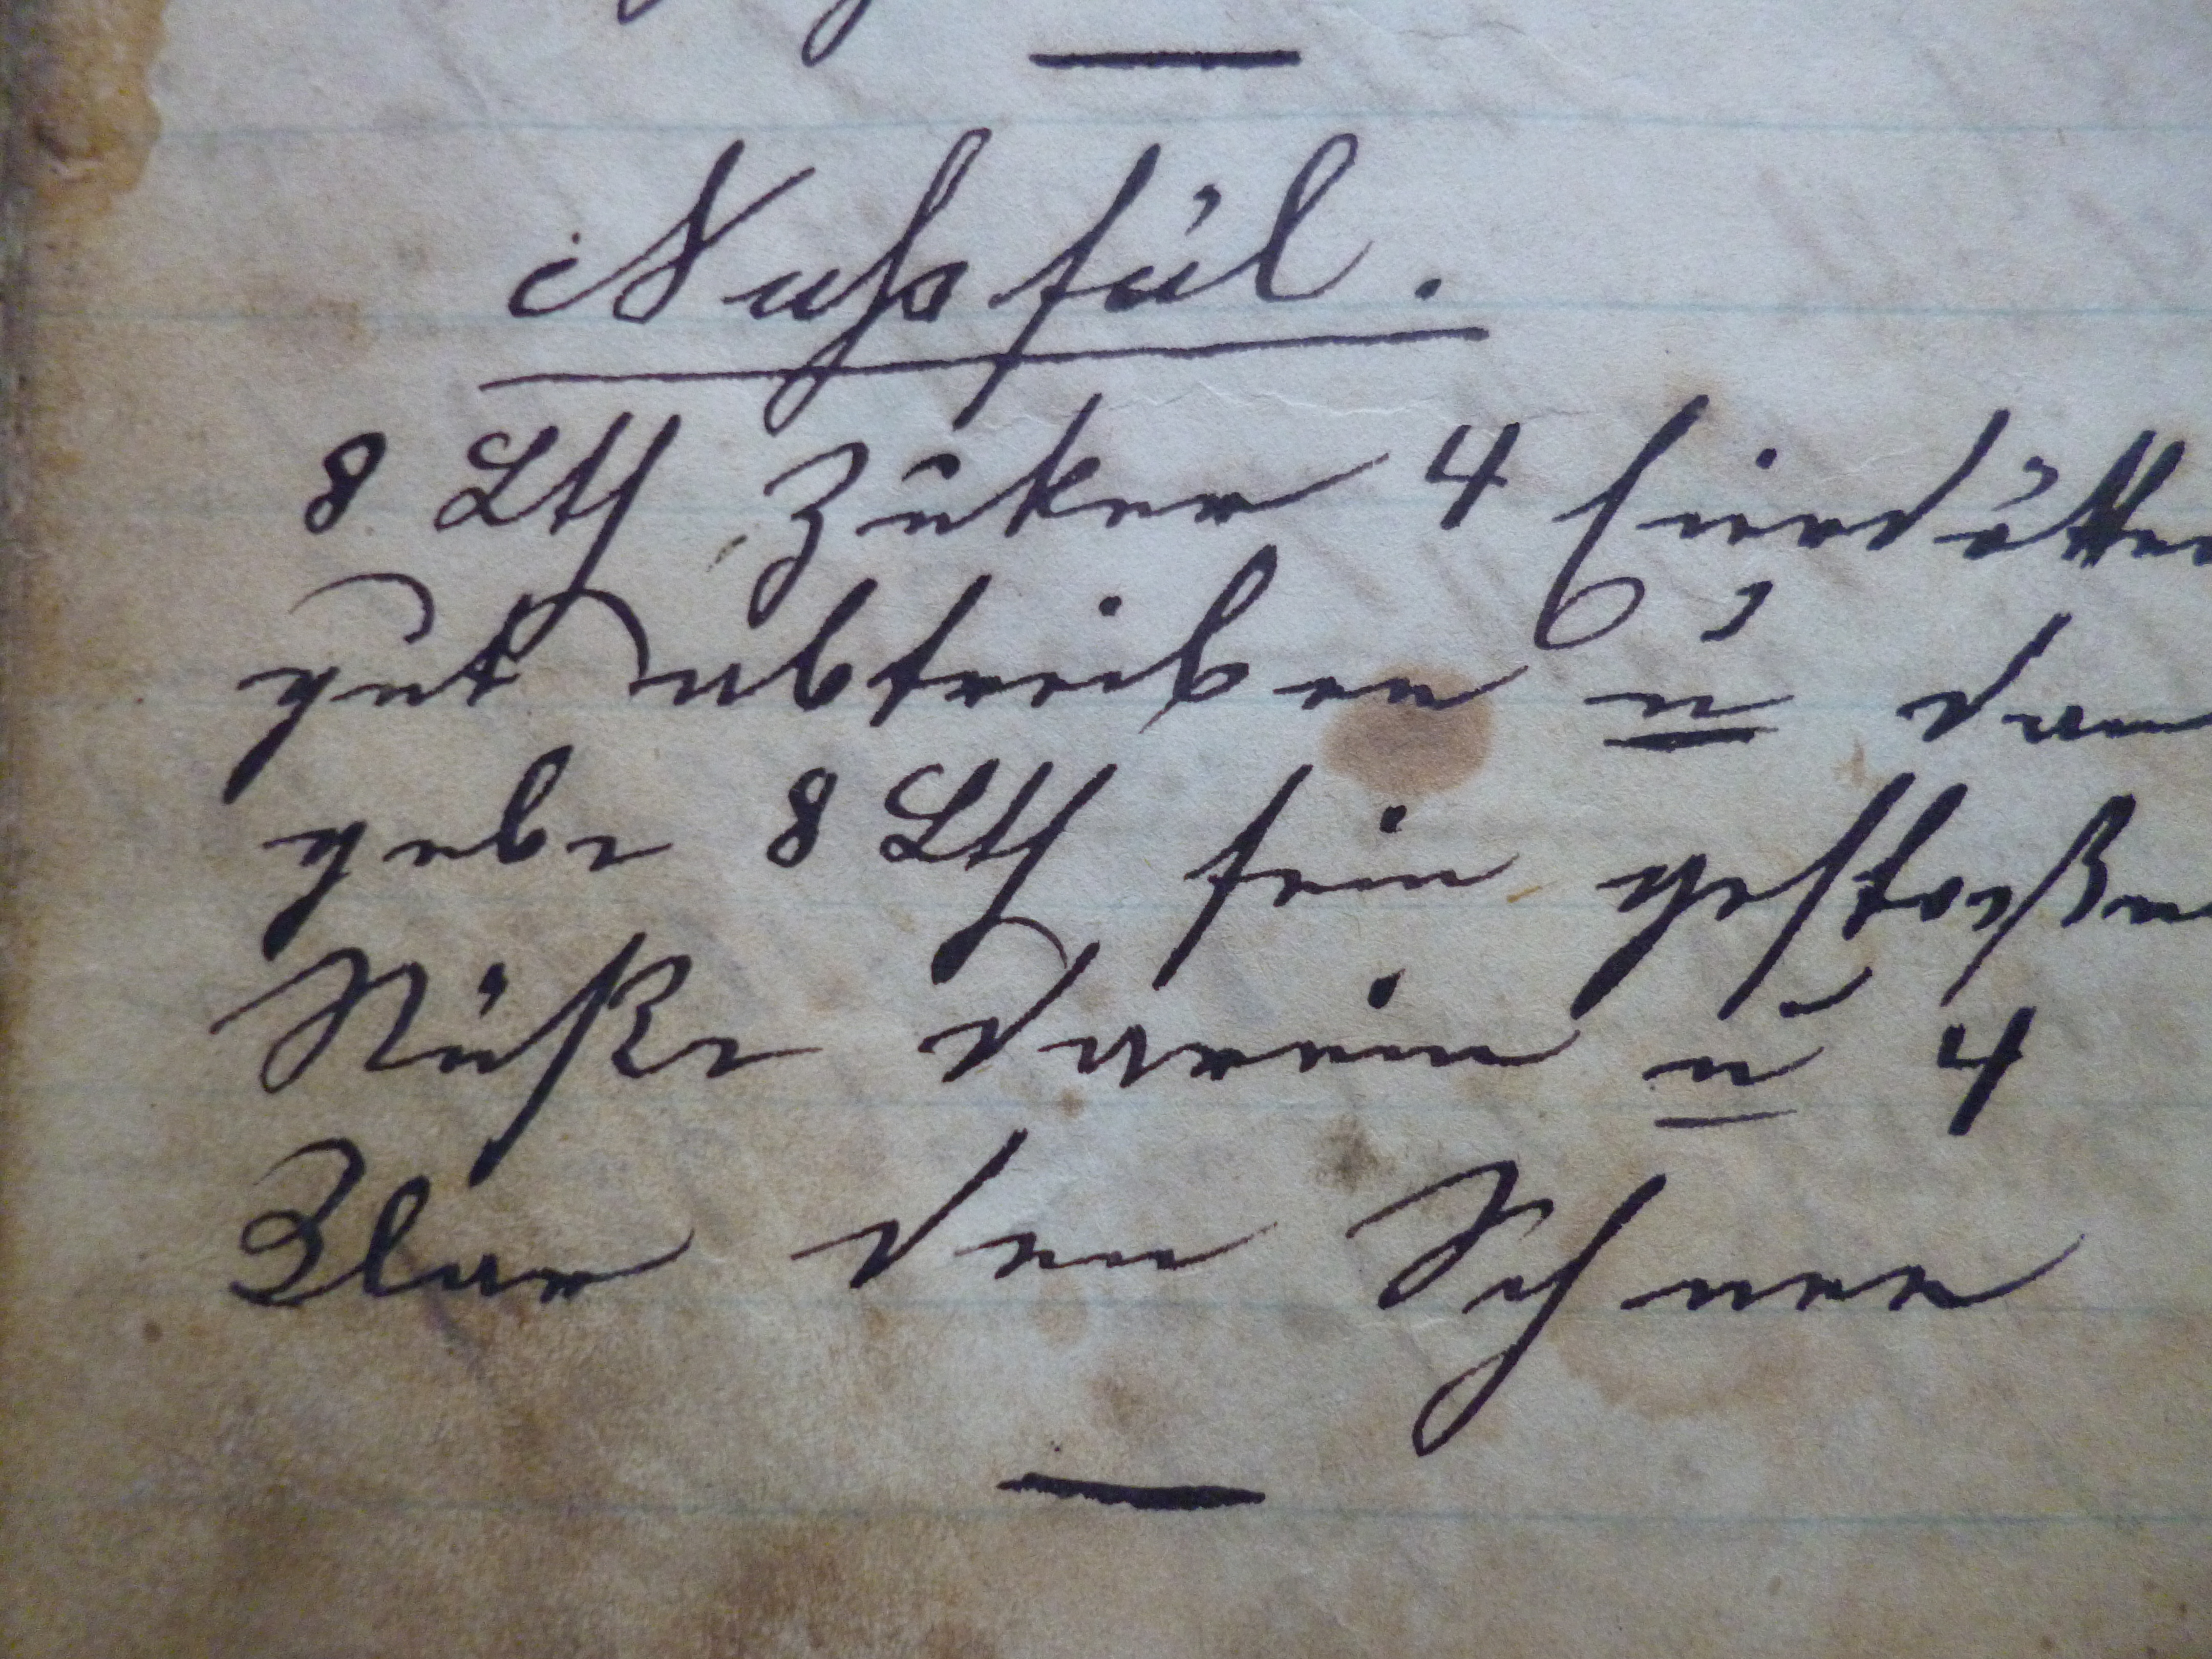 Nussfül.
8 Lth Zuker 4 Eierdötter
gut abtreiben u
gebe 8 Lth fein gestoßen
Nüße darein u 4
Klar den Schnee